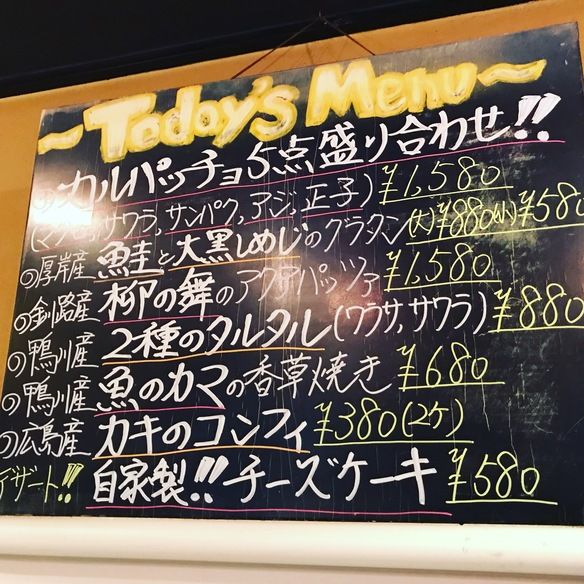 ~Today's Menu~
カルパッチョ5点盛り合わせ!!
サワラ,サンパク,アジ,正子) ¥1,580
○厚岸産 鮭と大黒しめじのグラタン (大)¥880(小)¥580
○釧路産 柳の舞のアクアパッツァ ¥1,580
○鴨川産 2種のタルタル(ワラサ,サワラ) ¥880
○鴨川産 魚のカマの香草焼き ¥680
○広島産 カキのコンフィ ¥380(2ケ)
デザート!! 自家製!!チーズケーキ ¥580